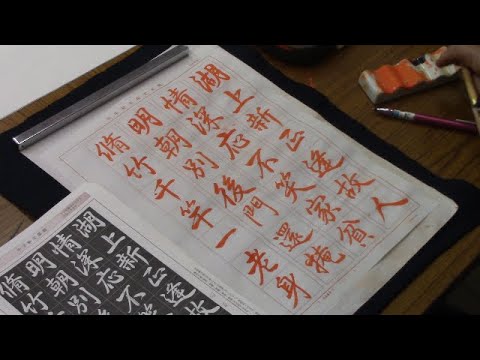 湖上新正逢故人
情深応不笑家貧
明朝別後門還掩
脩竹千竿一老身
湖上新正逢故
情深応不笑
明朝別
脩竹